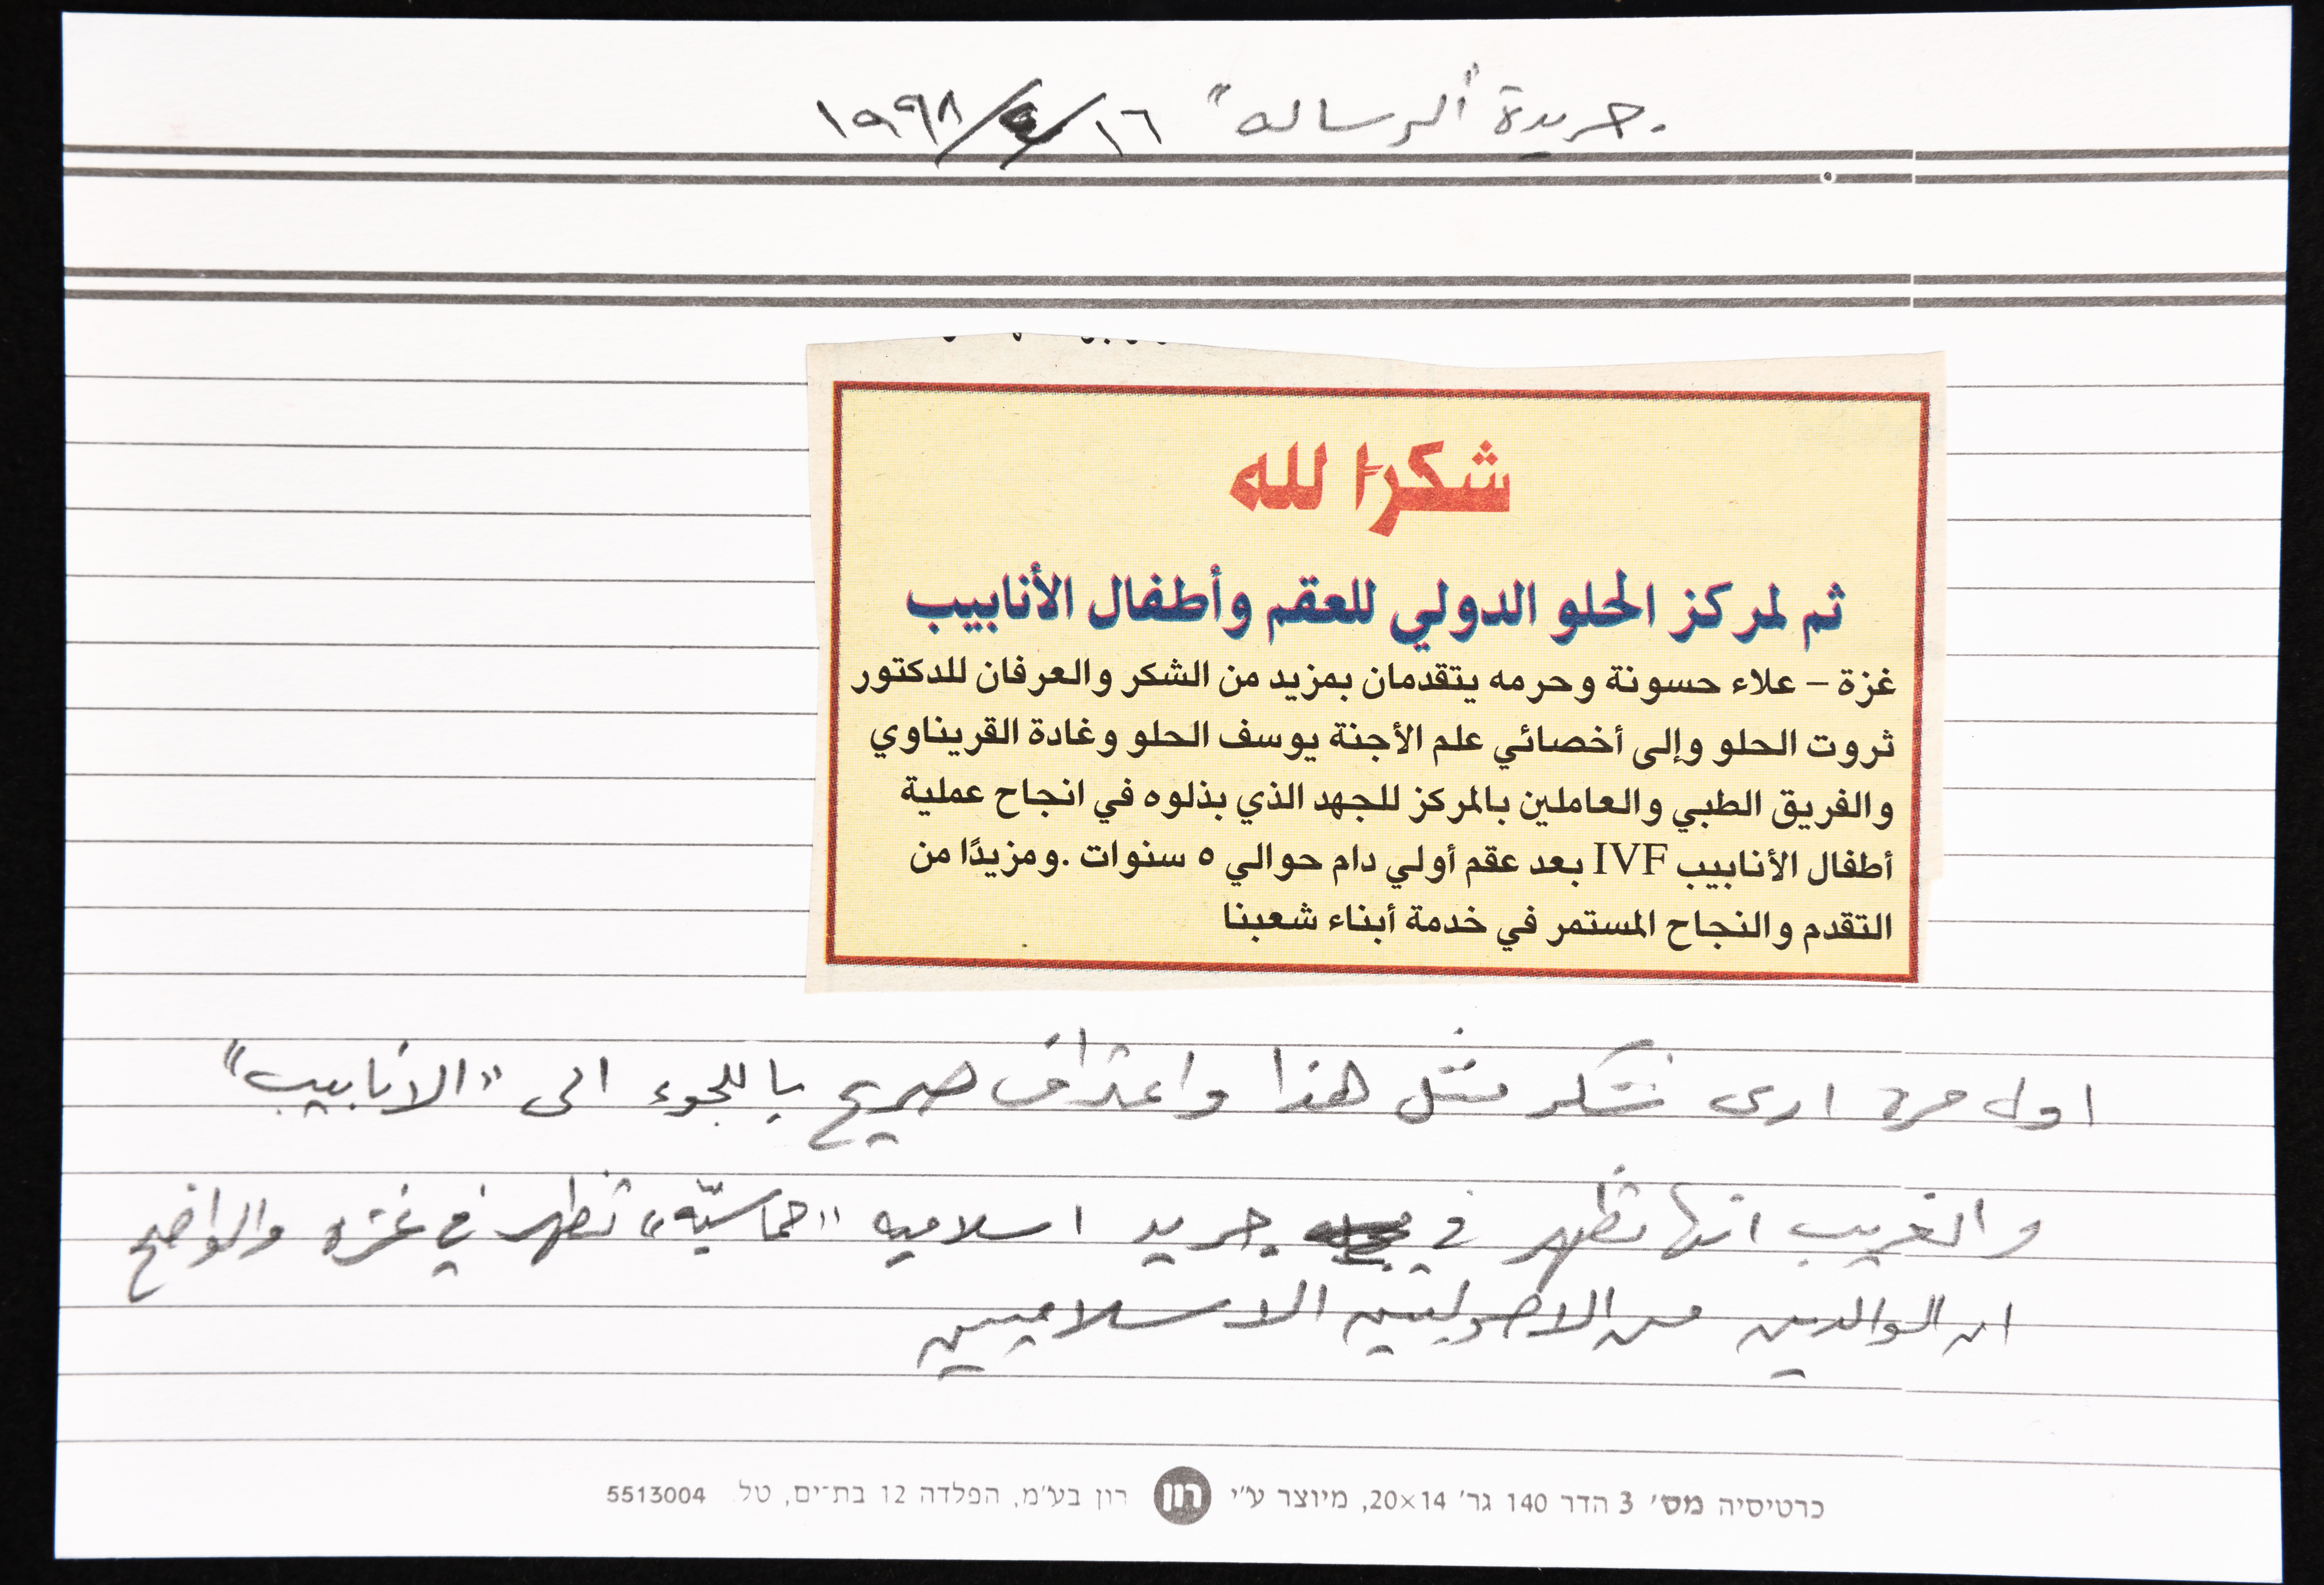 جريدة "الرساله" ١٦/٤/١٩٩٨
شكرا لله
ثم لمركز الحلو الدولي للعقم وأطفال الأنابيب
غزة – علاء حسونة وحرمه يتقدمان بمزيد من الشكر والعرفان للدكتور
ثروت الحلو وإلى أخصائي علم الأجنة يوسف الحلو وغادة القريناوي
والفريق الطبي والعاملين بالمركز للجهد الذي بذلوه في انجاح عملية
أطفال الأنابيب IVF بعد عقم أولي دام حوالي ٥ سنوات .ومزيدًا من
التقدم والنجاح المستمر في خدمة أبناء شعبنا
اول مرة ارى شكر مثل هذا واعتراف صريح باللجوء الى "الانابيب"
والغريب انها تظهر في جريد اسلاميه "حماسيّه" تظهر في غزه والواضح
ان الوالدين من الاصوليين الاسلاميين
כרטיסיה מס׳ 3 הדר 140 גר׳ 20×14, מיוצר ע״י רון רון בע״מ, הפלדה 12 בת־ים, טל. 5513004